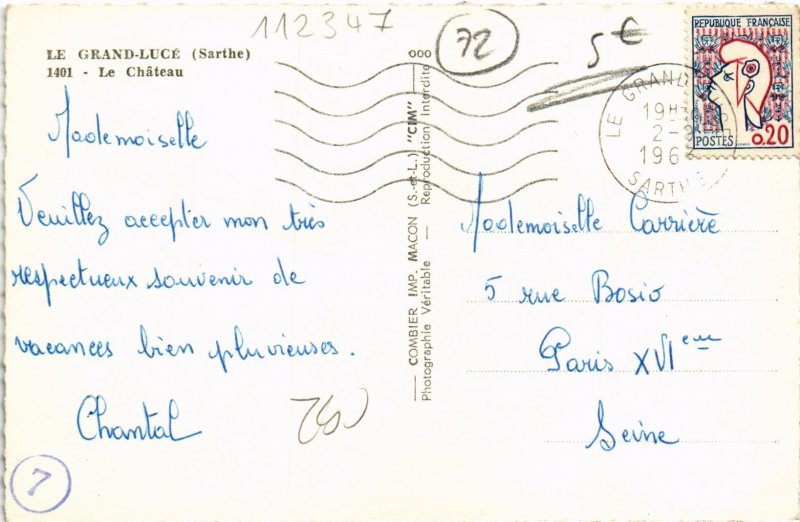 112347
72
5€
LE GRAND-LUCÉ (Sarthe)
1401 - Le Château
Mademoiselle
Veuillez accepter mon très
respectueux souvenir de
vacances bien pluvieuses.
Chantal
7
COMBIER IMP. MACON (S.-et-L.) "CIM"
Photographie Véritable — Reproduction Interdite
REPUBLIQUE FRANÇAISE
POSTES 0,20
LE GRAND
SARTHE
Mademoiselle Carrière
5 rue Bosio
Paris XVIeme
Seine